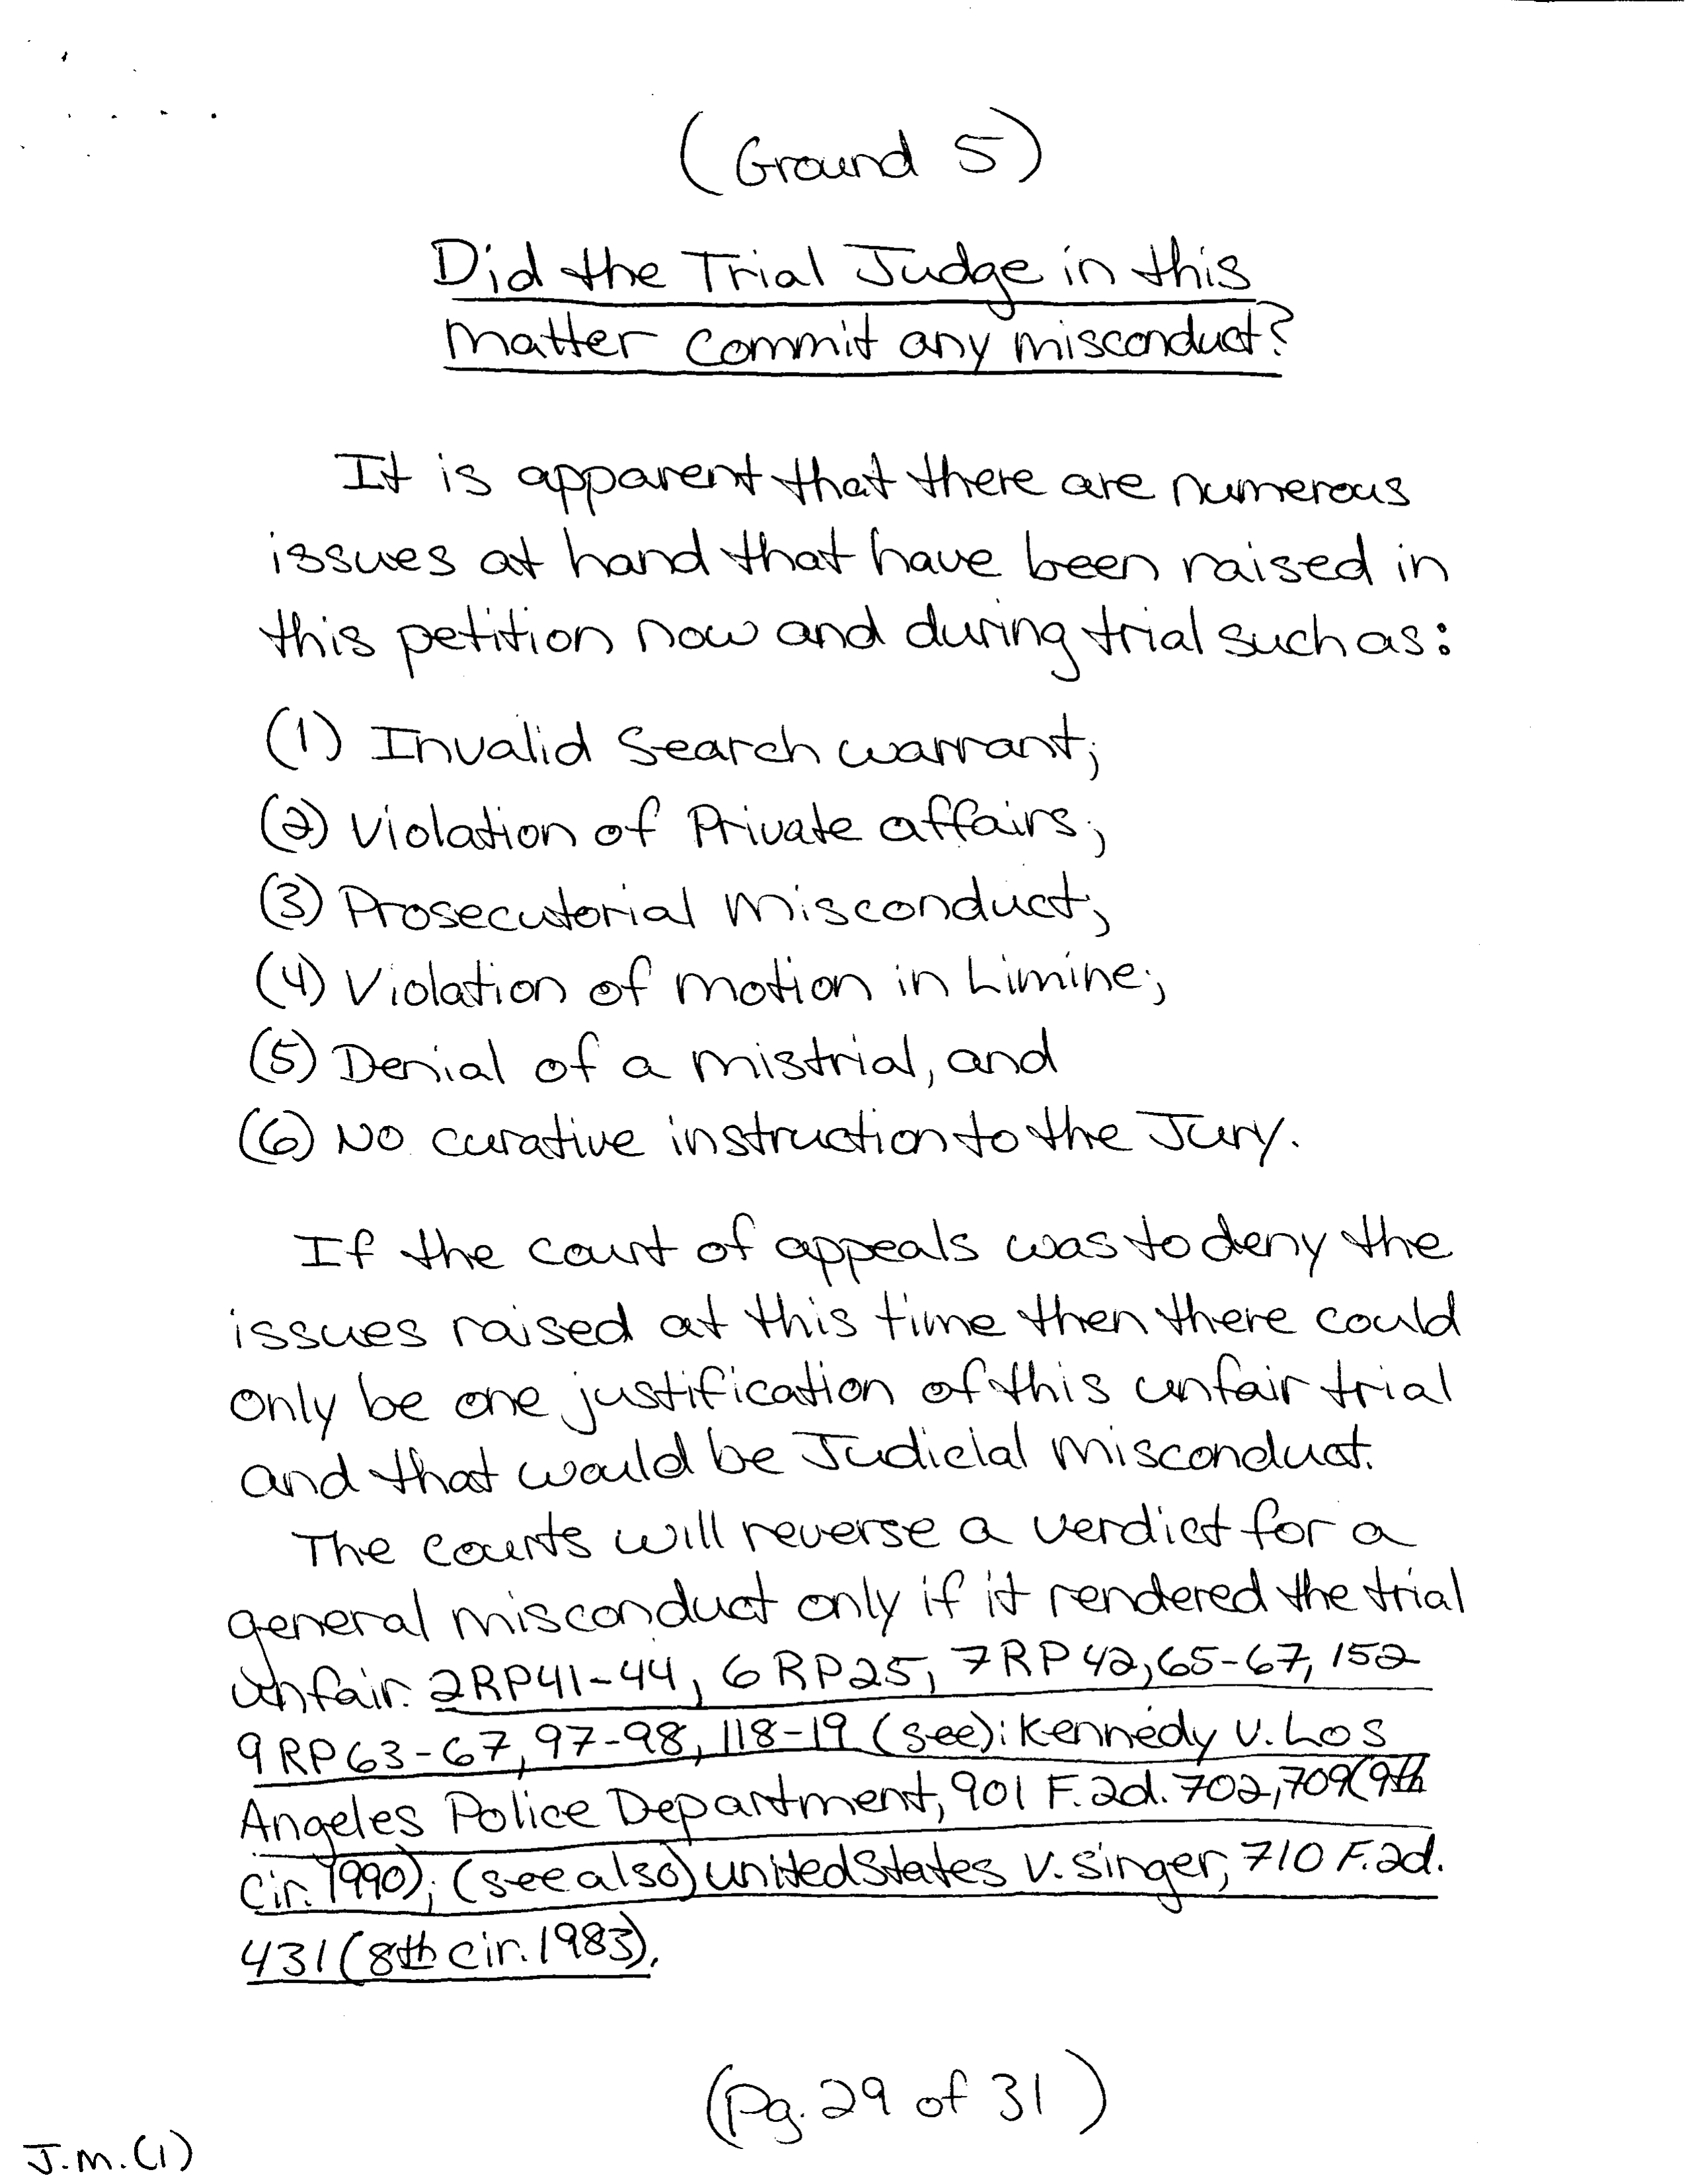 (Ground 5)
Did the Trial Judge in this
matter commit any misconduct?
It is apparent that there are numerous
issues at hand that have been raised in
this petition now and during trial such as:
(1) Invalid Search warrant;
(2) Violation of Private affairs;
(3) Prosecutorial misconduct;
(4) Violation of motion in Limine;
(5) Denial of a mistrial, and
(6) No curative instruction to the Jury.
If the court of appeals was to deny the
issues raised at this time then there could
only be one justification of this unfair trial
and that would be Judicial misconduct.
The courts will reverse a verdict for a
general misconduct only if it rendered the trial
unfair. 2RP41-44, 6 RP25, 7RP42,65-67, 152
9RP63-67, 97-98, 118-19 (see): Kennedy v. Los
Angeles Police Department, 901 F.2d. 702,709(9th
Cir. 1990); (see also) united States v. Singer, 710 F.2d.
431 (8th cir. 1983).
(Pg. 29 of 31)
J.M.(1)